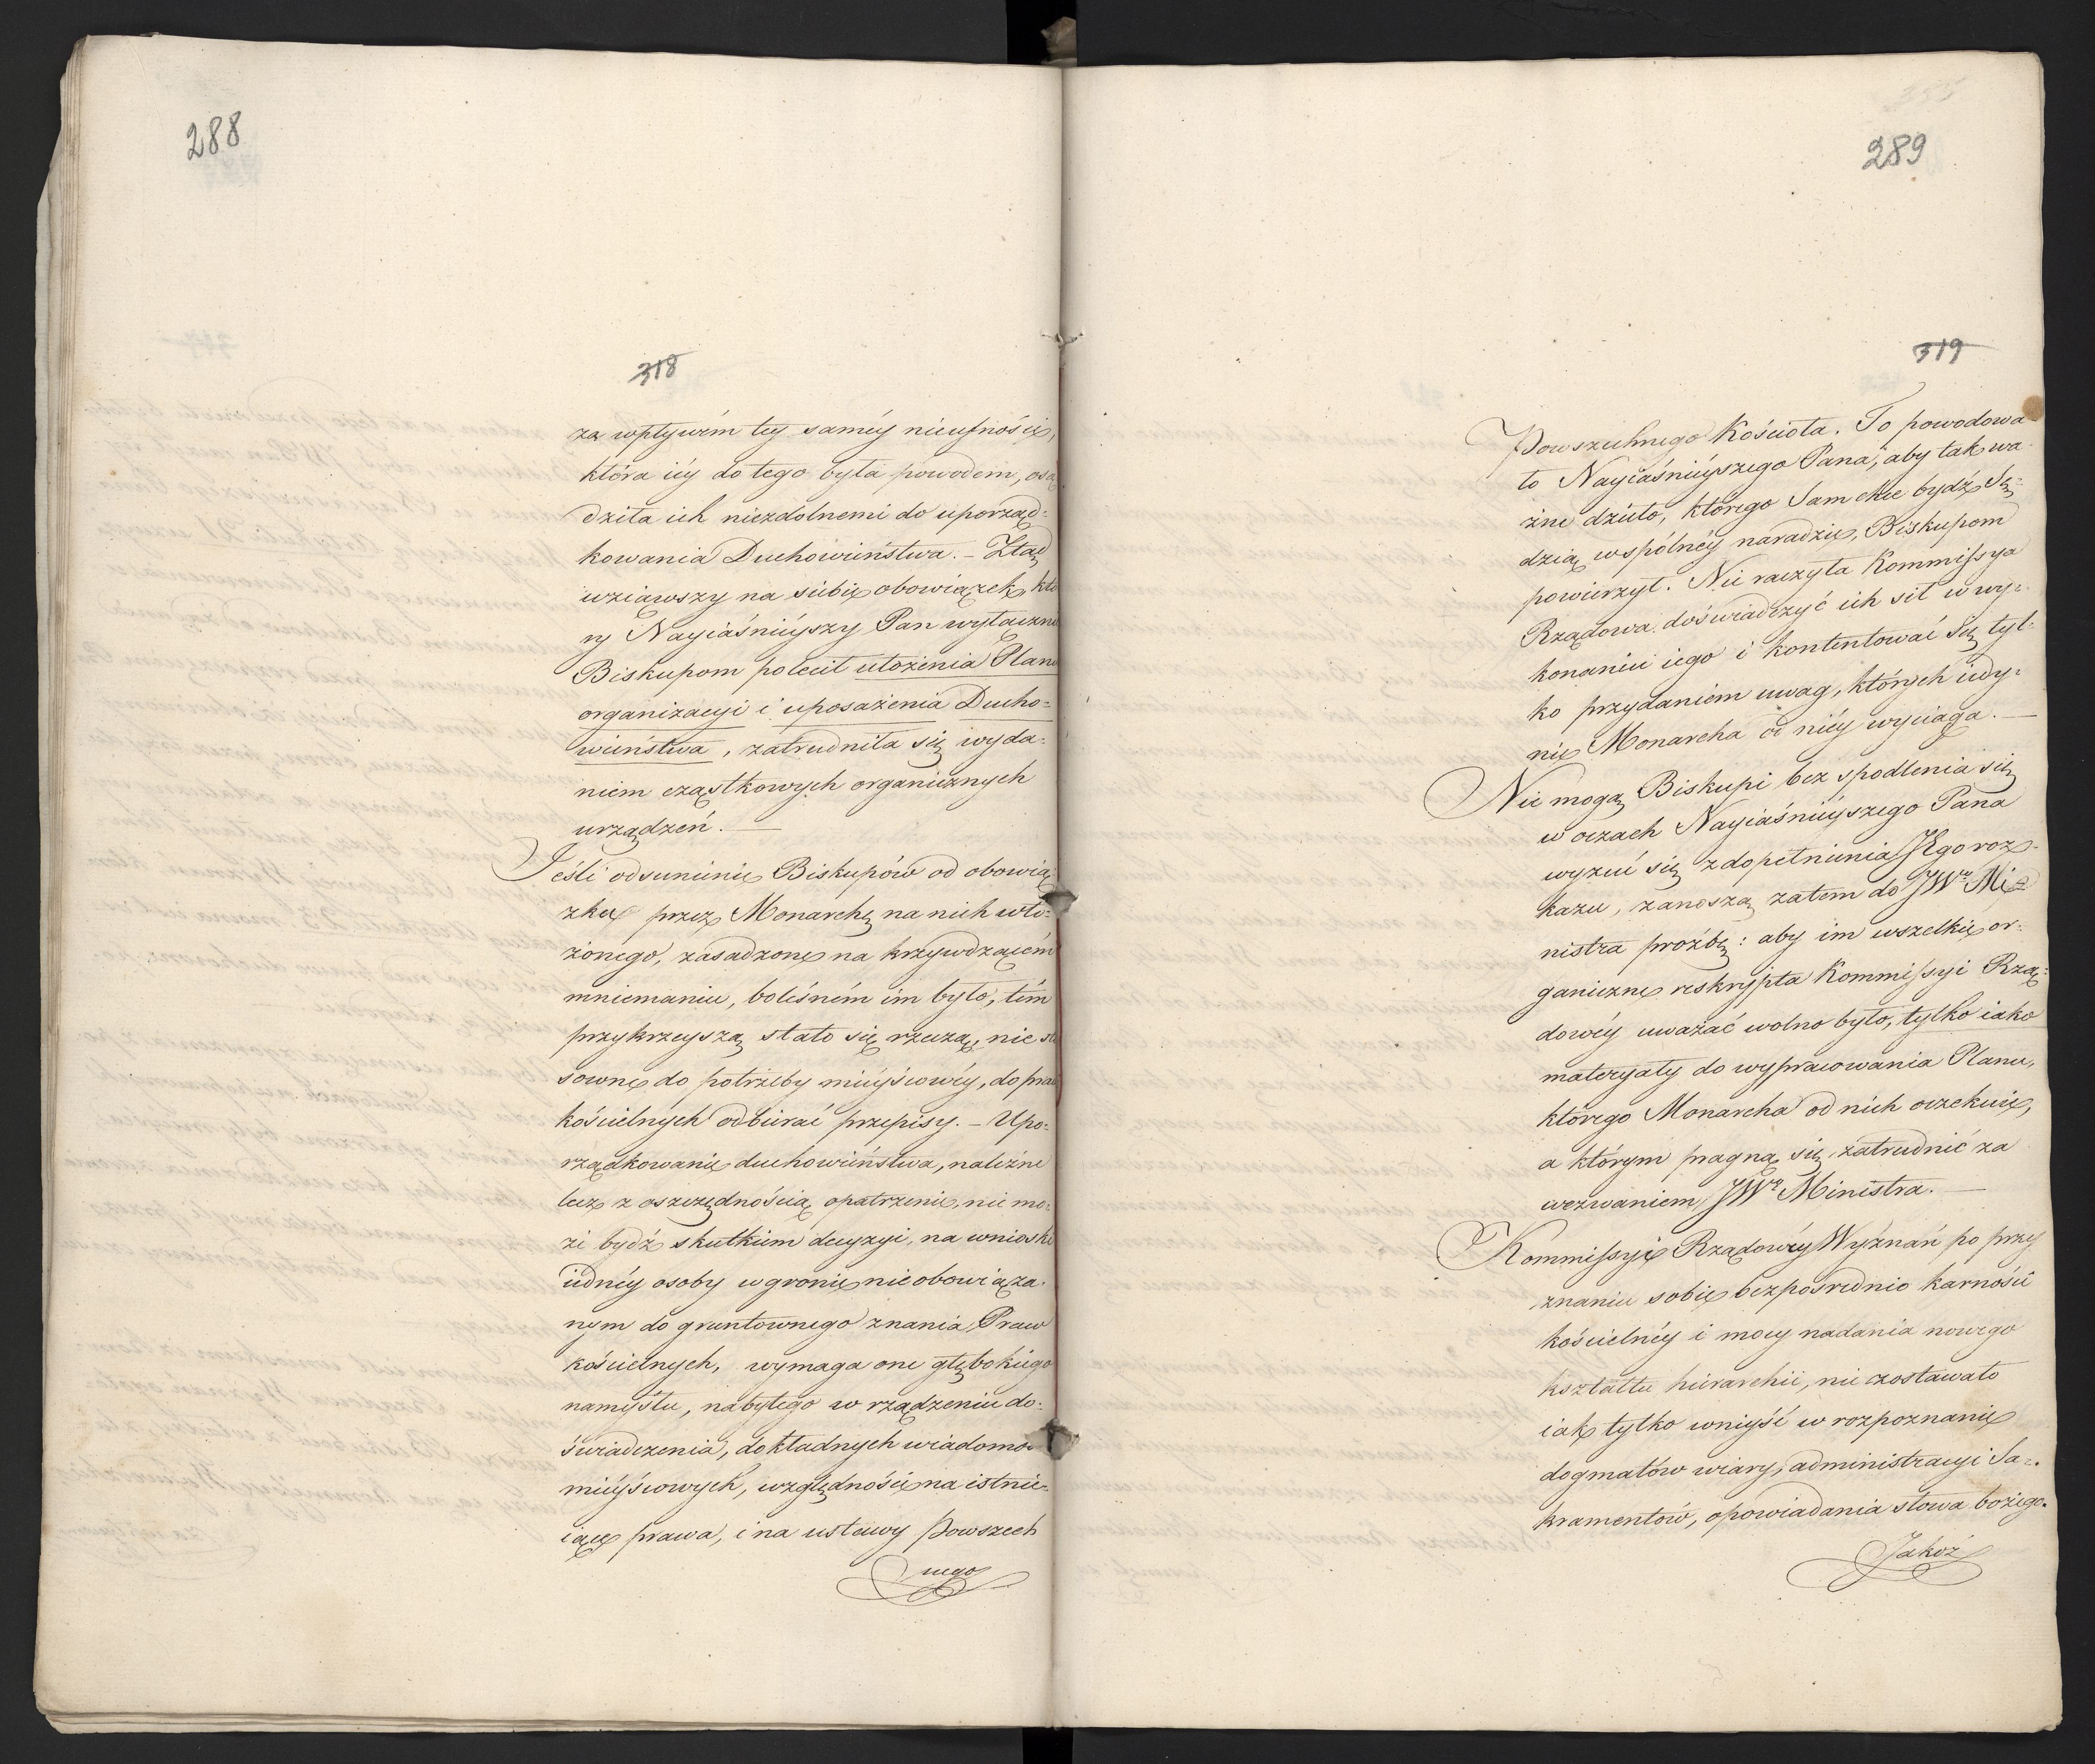 288
318
za wpływem tey saméy nieufności,
która iéy do tego była powodem, osą
dziła ich niezdolnemi do uporząd=
kowania Duchowieństwa. – Ztąd
wziąwszy na siebie obowiązek, któ
ry Nayiaśnieyszy Pan wyłączni
Biskupom polecił ułożenia Planu
organizacyi i uposażenia Ducho=
wieństwa, zatrudniła się wyda=
niem cząstkowych organicznych
urządzeń. —
Jeśli odsunienie Biskupów od obowią
zku przez Monarchę na nich wło=
żonego, zasadzone na krzywdzącém
mniemaniu, bolesném im było, tém
przykrzeyszą stało się rzeczą, nie sto
sowne do potrzeby mieyscowéy, do praw
kościelnych odbierać przepisy. – Upo=
rządkowanie duchowieństwa, należne
lecz z oszczędnością opatrzenie, nie mo=
że bydź skutkiem decyzyi, na wnioski
iednéy osoby w gronie nieobowiąza=
nym do gruntownego znania Praw
kościelnych, wymaga one głębokiego
namysłu, nabytego w rządzeniu do=
świadczenia, dokładnych wiadomo
mieyscowych, względności na istnie=
iące prawa, i na ustawy Powszech
nego
289
319
Powszechnego Kościoła. To powodowa
ło Nayiaśnieyszego Pana, aby tak wa
żne dzieło, którego Sam chce bydź Sę=
dzią, wspólnéy naradzie, Biskupom
powierzył. Nie raczyła Kommissya
Rządowa doświadczyć ich sił w wy=
konaniu iego i kontentować się tyl=
ko przydaniem uwag, których iedy=
nie Monarcha od niéy wyciąga. —
Nie mogą Biskupi bez spodlenia się
w oczach Nayiaśnieyszego Pana
wyzuć się z dopełnienia JEgo roz=
kazu, zanoszą zatem do JWo Mi=
nistra proźbę: aby im wszelkie or=
ganiczne reskrypta Kommissyi Rzą=
dowéy uważać wolno było, tylko iako
materyały do wypracowania Planu,
którego Monarcha od nich oczekuie,
a którym pragną się zatrudnić za
wezwaniem JWo Ministra. —
Kommissyi Rządowéy Wyznań po przy
znaniu sobie bezpośrednio karności
kościelnéy i mocy nadania nowego
kształtu hierarchii, nie zostawało
iak tylko wniyść w rozpoznanie
dogmatów wiary, administracyi Sa=
kramentów, opowiadania słowa bożego.
Jakoż